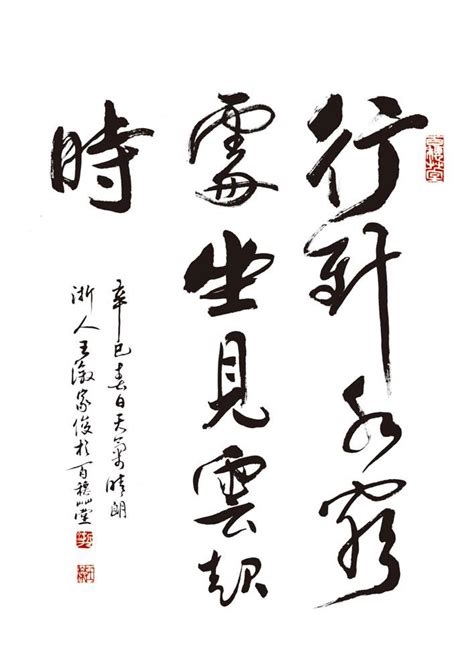 行到水窮
處坐見雲起
時
辛巳春日天氣晴朗
浙人王家俊於百穗艸堂